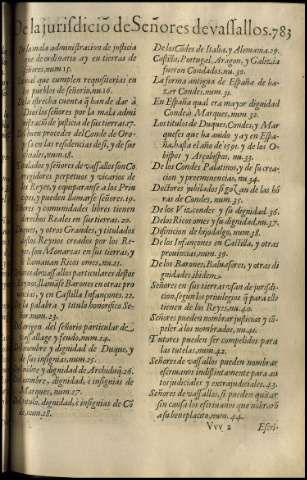 De la jurisdicion de Señores de vassallos. 783
De la mala administracion de justicia
que de ordinario ay en tierras de
Señores, num. 15.
que cumplen requisitorias en
pueblos de señorio, nu. 16.
De la estrecha cuenta que han de dar à
Dios los señores por la mala admi
nistracion de justicia de sus tierras. 17.
buen proceder del Conde de Oro-
pesa en las residencias de si, y de sus
num. 18.
señores de vassallos son Co
rregidores perpetuos y vicarios de
los Reyes, y equiparanse a los Prin
cipes, y pueden llamarse señores. 19.
y comunidades libres tienen
derechos Reales en sus tierras. 20.
Duques, y otros Grandes, y titulados
destos Reynos creados por los Re-
yes, son Monarcas en sus tierras, y
se llamaron Ricos omes, nu. 21.
de vassallos particulares destos
Reynos, llamãse Barones en otras pro
uincias, y en Castilla Infançones. 22.
la palabra y titulo honorifico Se-
ñor, num. 23.
Origen del señorio particular de
vassallage y feudo, num. 24.
Nombre y dignidad de Duque, y
de sus insignias, num. 25.
Nombre y dignidad de Archiduq̃. 26.
Nombre, dignidad, è insignias de
Marques, num. 27.
Titulo, dignidad, è insignias de Cõ
de, num. 28.
De los Cõdes de Italia, y Alemania. 29.
Castilla, Portugal, Aragon, y Galizia
fueron Condados, nu. 30.
La forma antigua de España de ha-
zer Condes, num. 31.
En España qual era mayor dignidad
Conde ò Marques, num. 32.
Los titulos de Duques, Condes, y Mar
queses que ha auido y ay en Espa-
ña, hasta el año de 1595. y de los Ob-
bispos y Arçobispos, nu. 33.
De los Condes Palatinos, y de su crea-
cion y preeminencias, nu. 34.
Doctores jubilados si goçan de los hõ
ras de Condes, num. 35.
De los Vizcondes y su dignidad. 36.
De los Ricos omes y su dignidad, nu. 37.
Difinicion de hijodalgo, num. 38.
De los Infançones en Castilla, y otras
prouincias, num. 39.
De los Barones, Baluasores, y otras di
gnidades, ibidem.
Señores en sus tierras vsan de jurisdi-
cion, segun los priuilegios q̃ para ello
tienen de los Reyes, num. 40.
Señores pueden nombrar justicias y cõ
peler à los nombrados, nu. 41.
Tutores pueden ser compelidos para
las tutelas, num. 42.
Señores de vassallos pueden nombrar
escriuanos indistintamente para au
tos judiciales y extrajudiciales. 43.
Señores de vassallos, si pueden quitar
sin causa los escriuanos que nõbraro
a su beneplacito, num. 44.
Vvv 2 Escri-